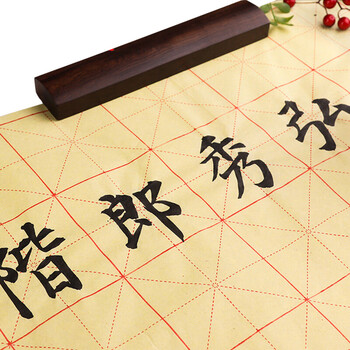 階郎秀弘